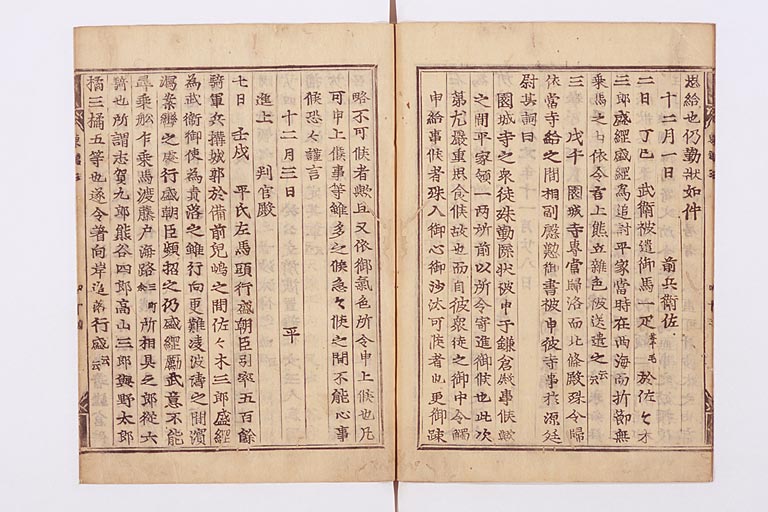 挺給也仍勤状如件
十二月一日　前兵衛佐
二日　丁巳　武衛被遣御馬一疋葦毛於佐々木
三郎盛經盛經為追討平家當時在西海而折節無
乗馬之由依令言上態立雑色被送遣之云云
三日　戊午　園城寺專當歸洛而北條殿殊令歸
依當寺給之間相副慇懃御書被申彼寺事於源廷
尉其詞曰
園城寺之衆徒殊勤原状被申于鎌倉殿事候歟
之間平家領一両所前以所令寄進御候也此次
第尤嚴重思食候故也而自彼衆徒之御中令觸
申給事候者殊入御心御沙汰可候者也更御疎
略不可候者歟且又依御氣色所令申上候也凡
可申上候事等雖多之候急々候之間不能心事
候恐々謹言
十二月三日　平
進上　判官殿
七日　壬戌　平氏左馬頭行盛朝臣引率五百餘
騎軍兵搆城郭於備前兒嶋之間佐々木三郎盛經
為武衛御使為責落之雖行向更難凌波濤之間濱
渇案轡之處行盛朝臣頻招之仍盛經勵武意不能
尋乗船乍乗馬渡藤戸海路三町餘所相具之郎從六
騎也所謂志賀九郎熊谷四郎高山三郎與野太郎
橘三橘五等也遂令著向岸追落行盛云云